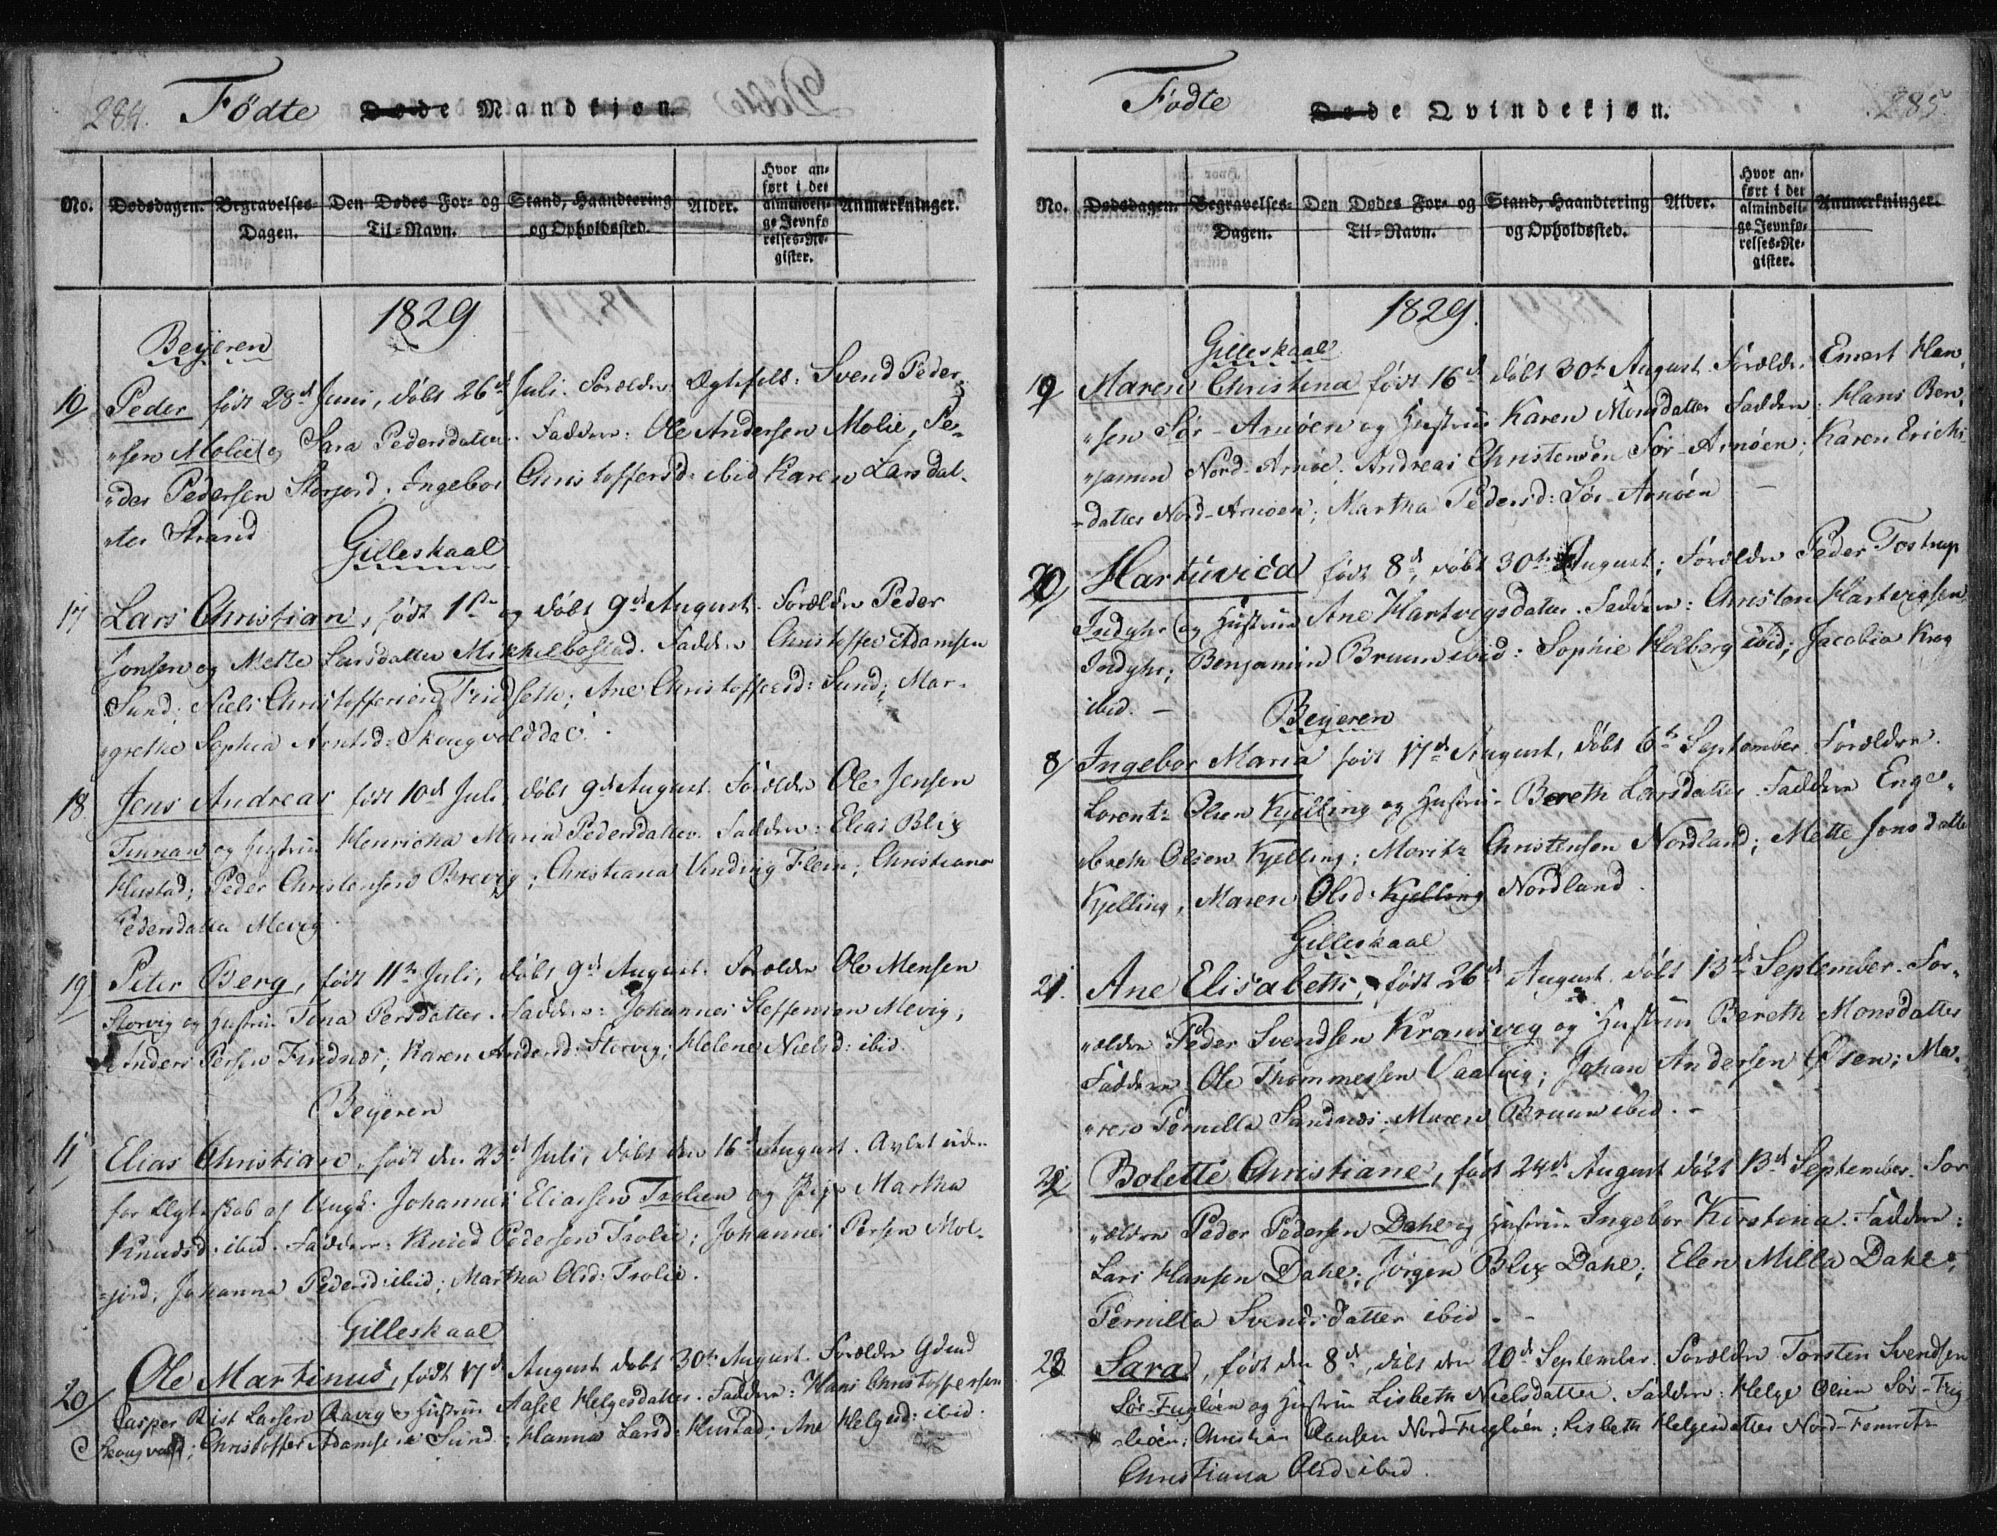 284.
Födte Døde Mandkjøn.
No. Dødsdagen. Begravelses- Dagen. Den Dødes For- og Til-Navn. Stand, Haandtering og Opholdssted. Alder. Hvor anført i det almindelige Jevnførelses-Register. Anmærkninger.
1829
Beyeren
10 Peder født 28d Juni, døbt 26d Juli. Forældre: Ægtefolk: Svend Peder
"sen Molid og Sara Pedersdatter. Faddere: Ole Andersen Molie, Pe-
"der Pedersen Storjord. Ingebor Christoffersd: ibid Karen Larsdat-
"ter Strand
Gilleskaal
17 Lars Christian, født 1ste og døbt 9d August. Forældre Peder
Jonsen og Mette Larsdatter Mikkelbostad. Faddere Christoffer Adamsen
Sund; Niels Christoffersen Fridsette; Ane Christoffersd: Sund; Mar-
"grethe Sophia Arntsd: Skougvolddal.
18 Jens Andreas født 10d Juli, døbt 9d August. Forældre Ole Jensen
Finnan og Hustrue Henricha Maria Pedersdatter. Faddere: Elias Blix
Hustad; Peder Christensen Brevig; Christiana Vinding Flein; Christiana
Pedersdatter Mevig.
19 Peter Berg, født 11te Juli, døbt 9d August. Forældre Ole Mensen
Storvig og Hustrue Tona Persdatter. Faddere: Johannes Steffensen Mevig,
Anders Persen Findnæs; Karen Andersd: Storvig; Helene Nielsd: ibid.
Beyeren
11 Elias Christian, født den 23d Juli, døbt den 16d August. Avlet uden
for Ægteskab af Ungk. Johannes Eliassen Trolien og Pige Martha
Knudsd: ibid. Faddere: Knud Pedersen Trolie; Johannes Persen Mol-
"jord; Johanna Pedersd: ibid; Martha Olsd: Trolie.
Gilleskaal
20 Ole Martinus, født 17d August døbt 30te August. Forældre Gdmd
Casper Rist Larsen Ravig og Hustrue Aasel Helgesdatter. Faddere: Hans Christoffersen
Skougvold; Christoffer Adamsen Sund; Hanna Larsd: Hustad; Ane Helgesd: ibid.
285.
Födte Døde Qvindekjøn.
No. Dødsdagen. Begravelses- Dagen. Den Dødes For- og Til-Navn. Stand, Haandtering og Opholdssted. Alder. Hvor anført i det almindelige Jevnførelses-Register. Anmærkninger.
1829.
Gilleskaal
19 Maren Christina født 16d døbt 30te August. Forældre: Emert Han-
"sen Sør-Arnøen og Hustrue Karen Monsdatter Faddere: Hans Ben-
"jamin Nord-Arnøe. Andreas Christensen Sør-Arnøen; Karen Erichs
-datter Nord-Arnøen; Martha Pedersd: Sør-Arnøen
20 Hartuvica født 8d, døbt 30te August; Forældre Peder Tostrup
Indyhr og Hustrue Ane Hartvigsdatter. Faddere: Christen Hartvigsen
Indyhr; Benjamin Bruun ibid: Sophie Holberg ibid; Jacobia Krog
ibid. –
Beyeren
8 Ingebor Maria født 17d August, døbt 6te September Forældre.
Lorentz Olsen Kjelling og Hustrue Bereth Larsdatter. Faddere Enge-
"breth Olsen Kjelling; Moritz Christensen Nordland; Mette Jonsdatter
Kjelling, Maren Olsd: Kjelling Nordland.
Gilleskaal
21. Ane Elisabeth, født 26d August døbt 13d September. For-
"ældre Peder Svendsen Kransvig og Hustrue Bereth Monsdatter
Faddere Ole Thommessen Vaalvig; Johan Andersen Øsen; Ma-
"ren Pernilla Sundnæs. Maren Bruun ibid. –
22 Bolette Christiane, født 24d August døbt 13d September. For
"ældre Peder Pedersen Dahl og Hustrue Ingebor Kirstina. Faddere:
Lars Hansen Dahl; Jørgen Blix Dahl; Elen Milla Dahl;
Pernilla Svendsdatter ibid. –
23 Sara, født den 8d, døbt den 20d September. Forældre Torsten Svendsen
Sør-Fugløen og Hustrue Lisbeth Nielsdatter. Faddere: Helge Olsen Sør-Fug
"løen; Christian Clausen Nord-Fugløen; Lisbeth Helgesdatter Nord-
Christiana Olsd: ibid.